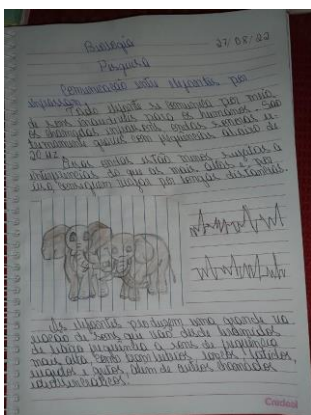 Biologia 27/08/22
Pesquisa
Comunicação entre elefantes por
infrassom
Todo elefante se comunica por meio
de sons inaudíveis para os humanos. São
os chamados infrassons, ondas sonoras
graves com frequências abaixo de
20 Hz
Essas ondas estão menos sujeitas a
interferências do que as mais altas e por
isso conseguem viajar por longas distâncias.
Os elefantes produzem uma grande va
riação de sons que vão desde bramidos
de baixa frequência a sons de frequência
mais alta, como latidos,
rugidos e gritos, além de outros chamados
Cardeal